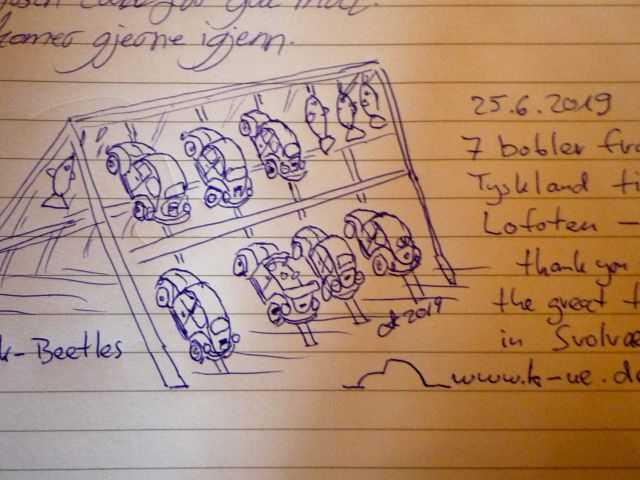 for you mat.
komer gjerne igjenn.
25.6.2019
7 bobler fra
Tyskland ti
Lofoten –
thank you
the great t
in Svolvæ
2019
k-Beetles
www.k-ue.de